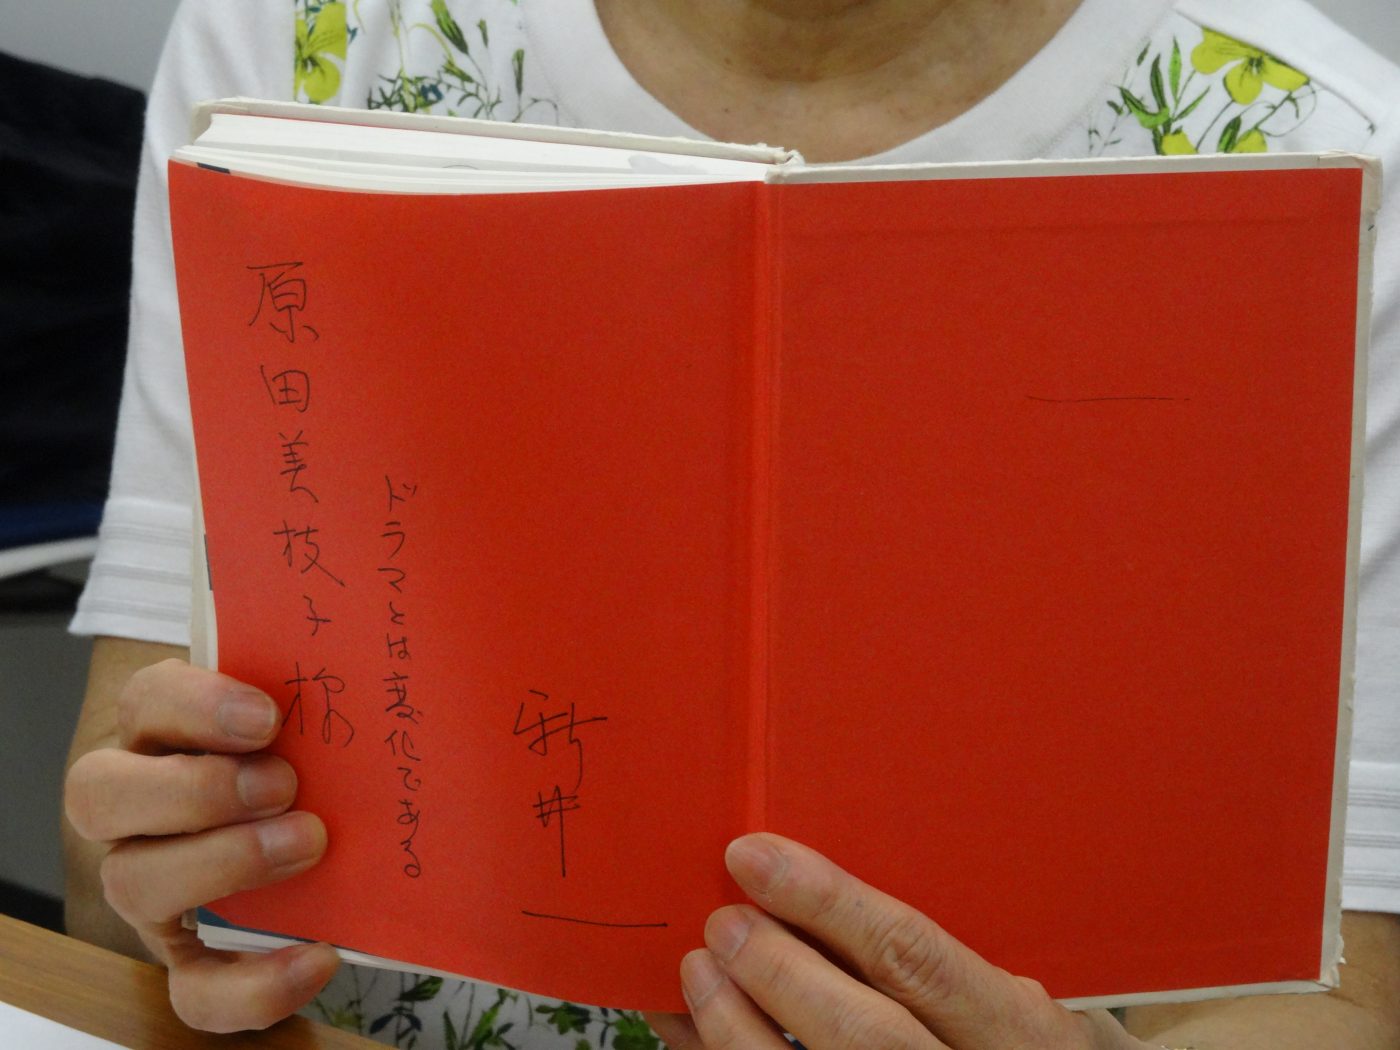 新井一
ドラマとは変化である
原田美枝子様